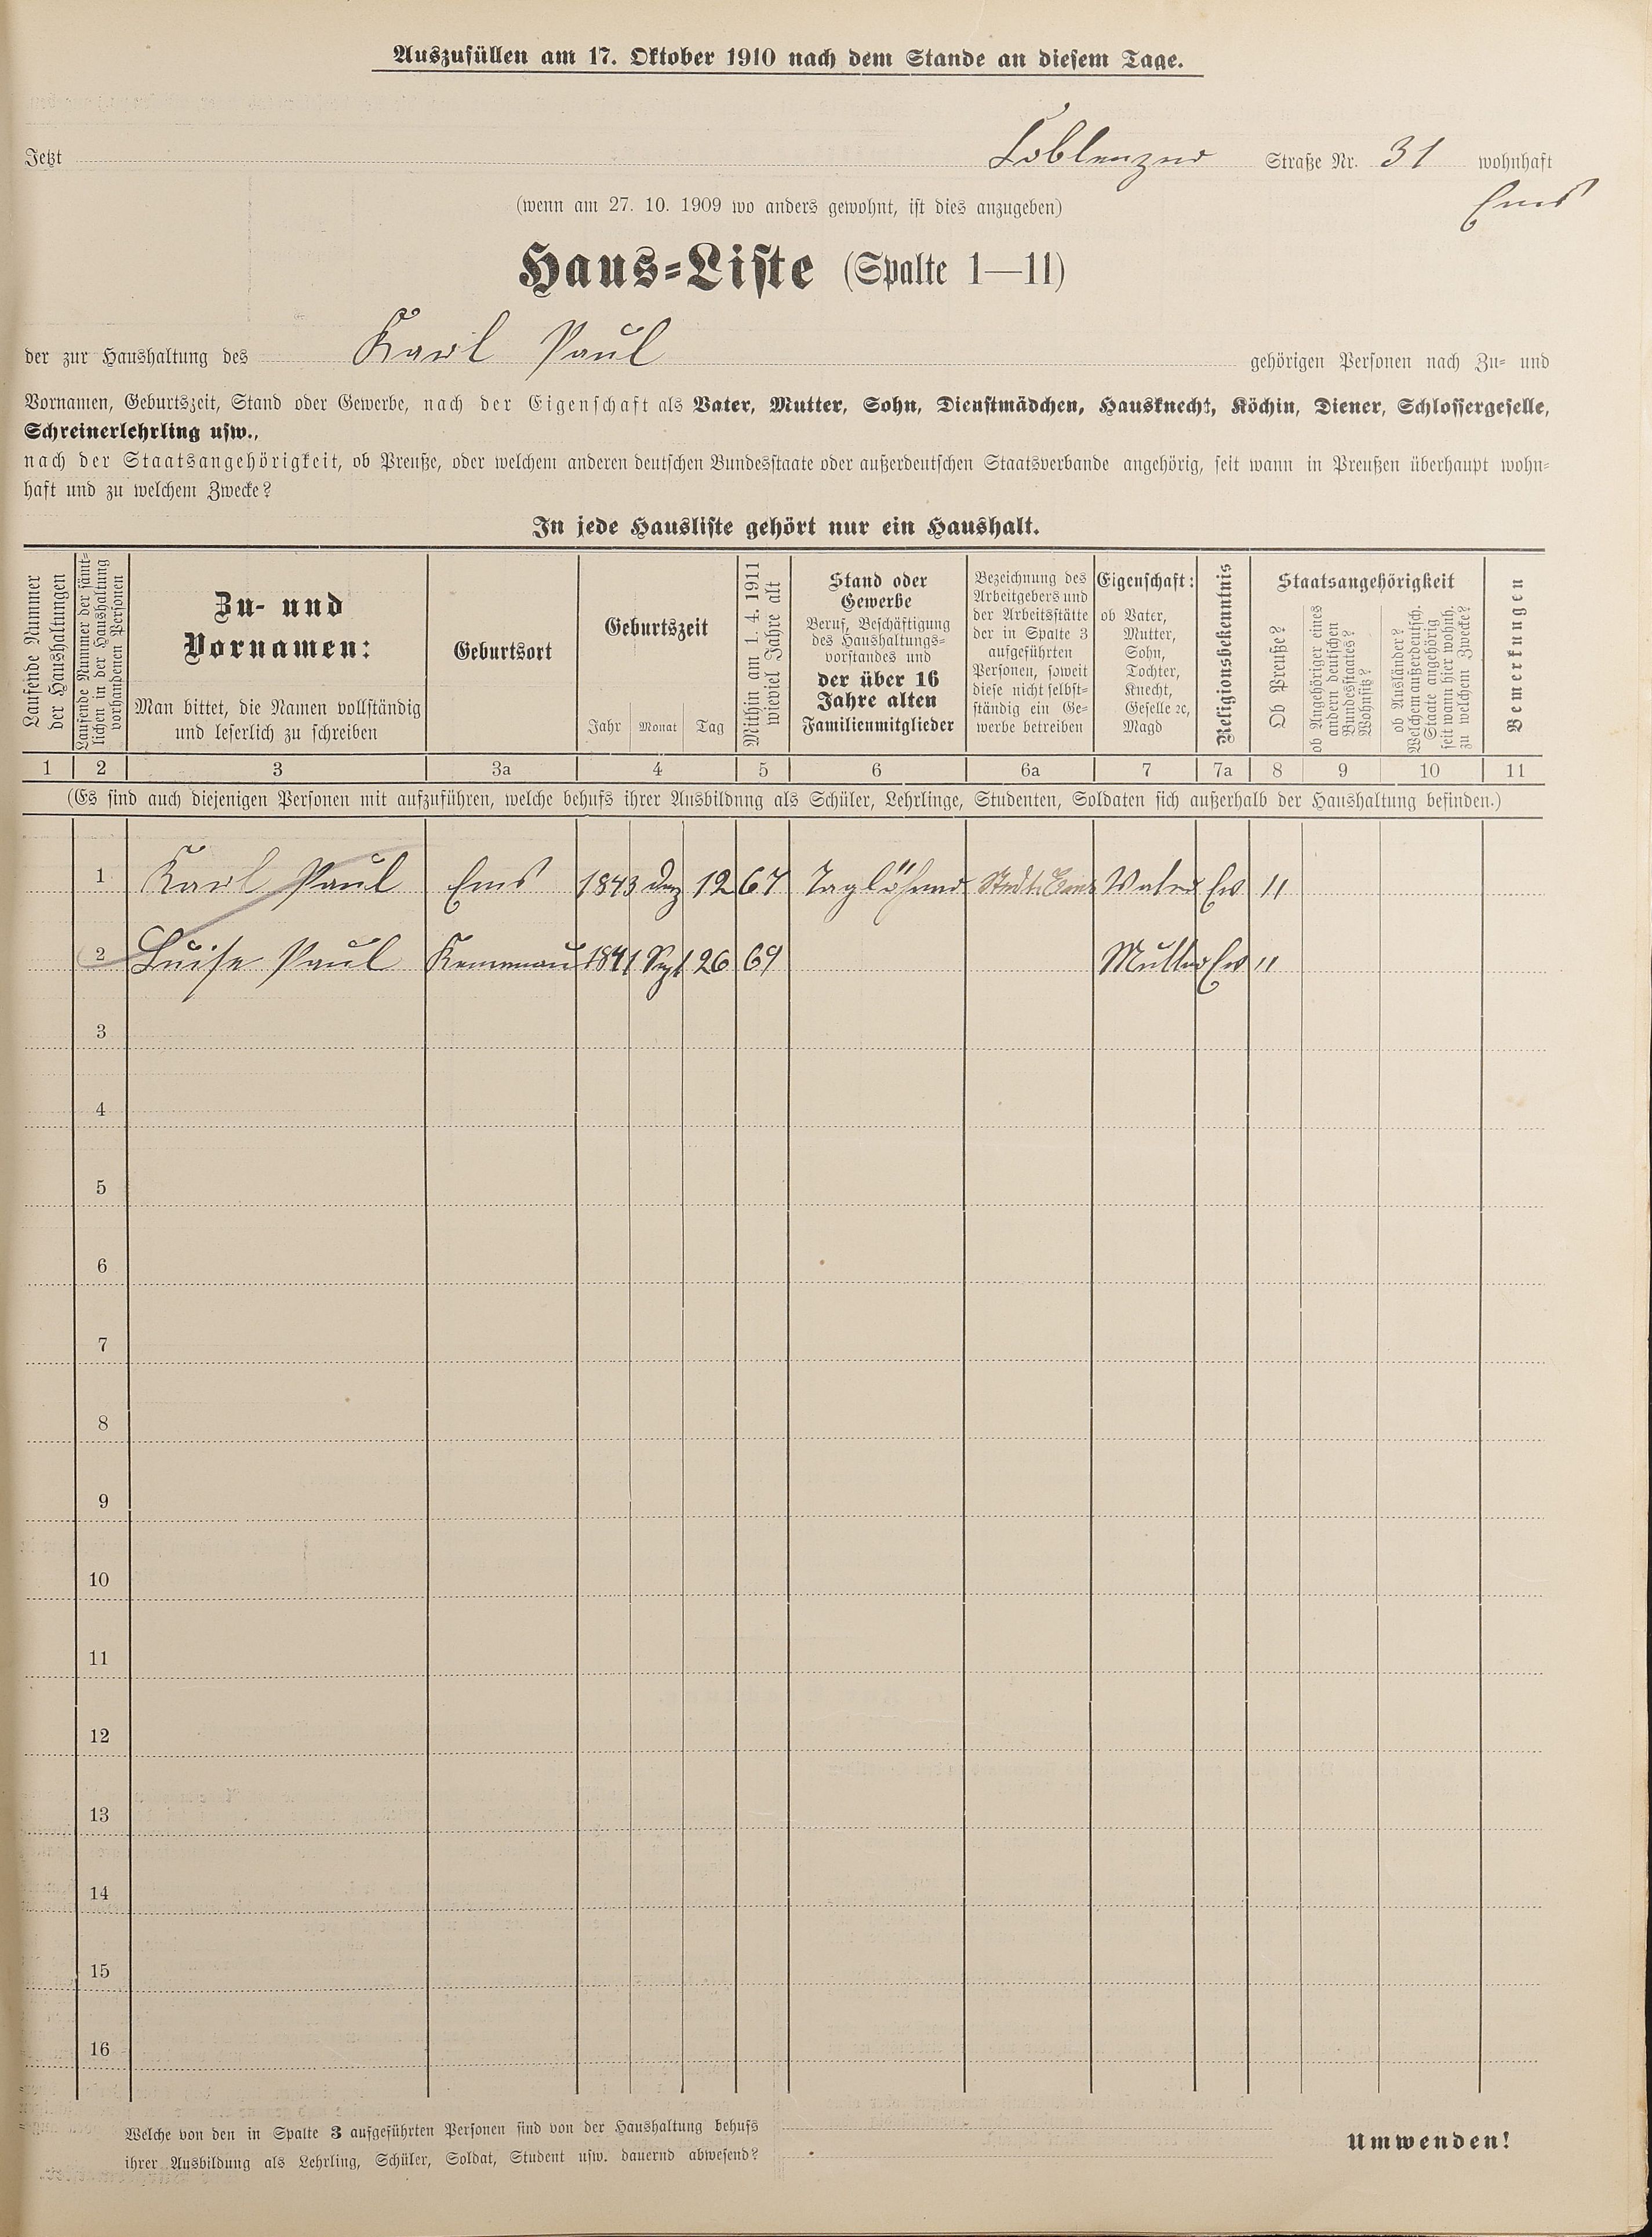 Auszufüllen am 17. Oktober 1910 nach dem Stande an diesem Tage.
Jetzt Coblenzer Straße Nr. 31 wohnhaft
Ems
(wenn am 27. 10. 1909 wo anders gewohnt, ist dies anzugeben)
Haus-Liste (Spalte 1—11)
der zur Haushaltung des Karl Paul gehörigen Personen nach Zu- und
Vornamen, Geburtszeit, Stand oder Gewerbe, nach der Eigenschaft als Vater, Mutter, Sohn, Dienstmädchen, Hausknecht, Köchin, Diener, Schlossergeselle,
Schreinerlehrling usw.,
nach der Staatsangehörigkeit, ob Preuße, oder welchem anderen deutschen Bundesstaate oder außerdeutschen Staatsverbande angehörig, seit wann in Preußen überhaupt wohn-
haft und zu welchem Zwecke?
In jede Hausliste gehört nur ein Haushalt.
Laufende Nummer
der Haushaltungen
Laufende Nummer der sämt-
lichen in der Haushaltung
vorhandenen Personen
Zu- und
Vornamen:
Man bittet, die Namen vollständig
und leserlich zu schreiben
Geburtsort
Geburtszeit
Jahr Monat Tag
Mithin am 1. 4. 1911
wieviel Jahre alt
Stand oder
Gewerbe
Beruf, Beschäftigung
des Haushaltungs-
vorstandes und
der über 16
Jahre alten
Familienmitglieder
Bezeichnung des
Arbeitgebers und
der Arbeitsstätte
der in Spalte 3
aufgeführten
Personen, soweit
diese nicht selbst-
ständig ein Ge-
werbe betreiben
Eigenschaft:
ob Vater,
Mutter,
Sohn,
Tochter,
Knecht,
Geselle ec,
Magd
Religionsbekenntnis
Staatsangehörigkeit
Ob Preuße?
ob Angehöriger eines
andern deutschen
Bundesstaates?
Wohnsitz?
ob Ausländer?
Welchem außerdeutsch.
Staate angehörig
seit wann hier wohnh.
zu welchem Zwecke?
Bemerkungen
1 2 3 3a 4 5 6 6a 7 7a 8 9 10 11
(Es sind auch diejenigen Personen mit aufzuführen, welche behufs ihrer Ausbildung als Schüler, Lehrlinge, Studenten, Soldaten sich außerhalb der Haushaltung befinden.)
1 Karl Paul Ems 1843 Dez 12 67 Taglöhner Stadt Ems Vater Ev "
2 Luise Paul Kemmenau 1841 Sept 26 69 Mutter Ev "
3
4
5
6
7
8
9
10
11
12
13
14
15
16
Welche von den in Spalte 3 aufgeführten Personen sind von der Haushaltung behufs
ihrer Ausbildung als Lehrling, Schüler, Soldat, Student usw. dauernd abwesend?
Umwenden!